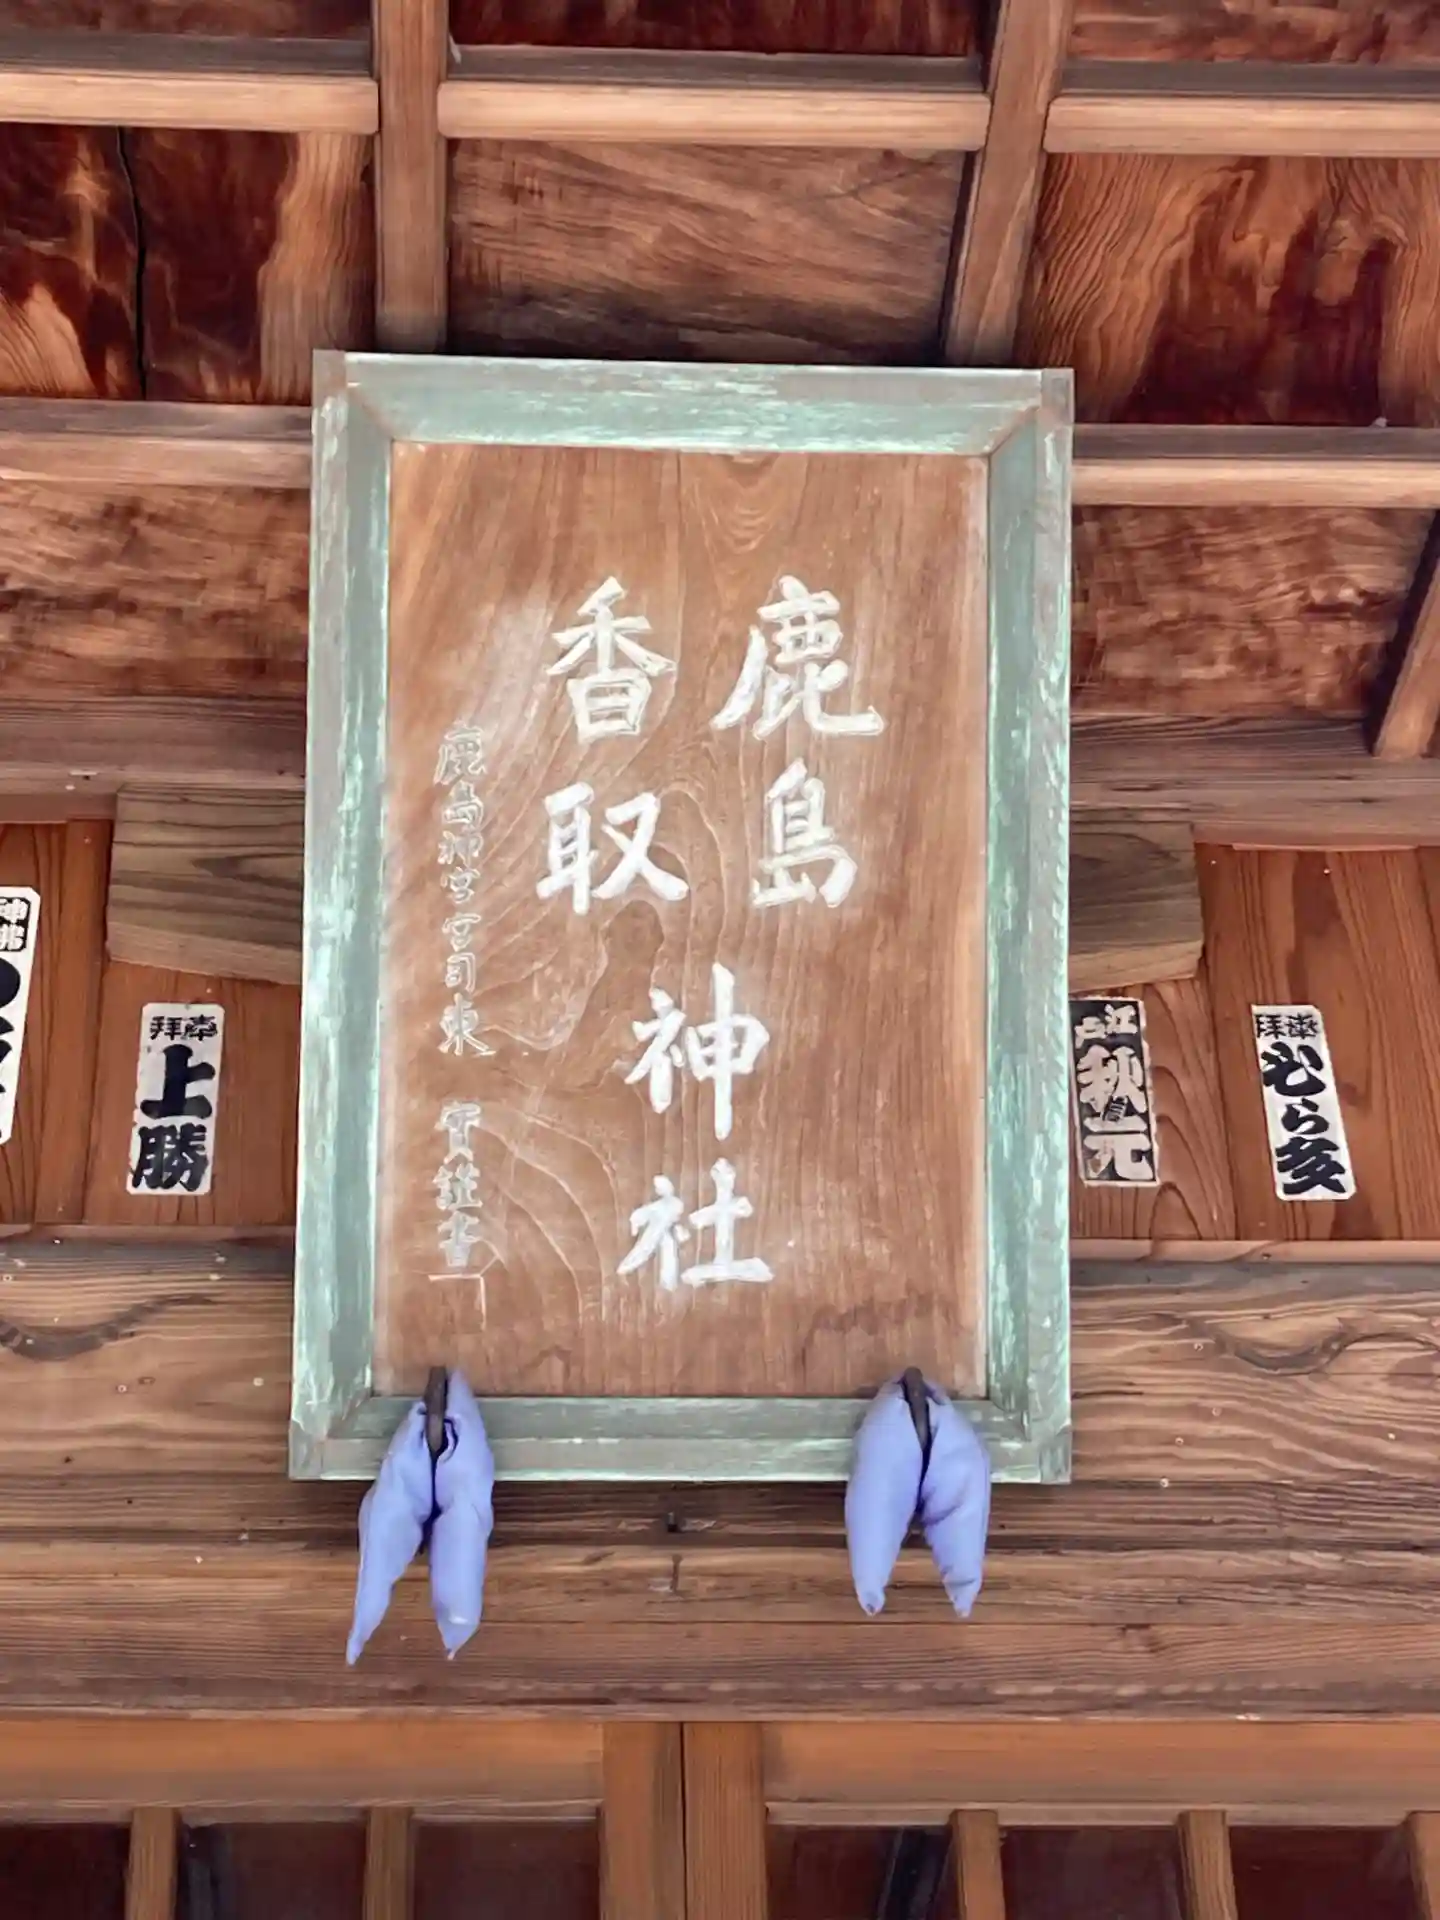 鹿島
香取
神社
鹿島神宮宮司東 實謹書
奉拝
むら亥
江戸
秋元
奉拝
上勝
神佛